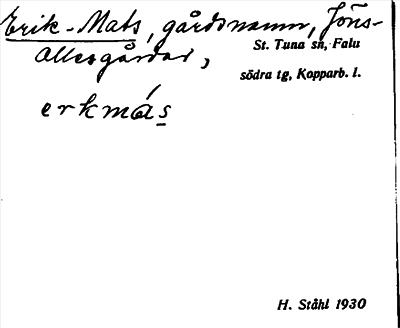 Erik-Mats, gårdsnamn, Jöns-
Ollesgården,
St. Tuna sn, Falu
södra tg, Kopparb. l.
erkmás
H. Ståhl 1930